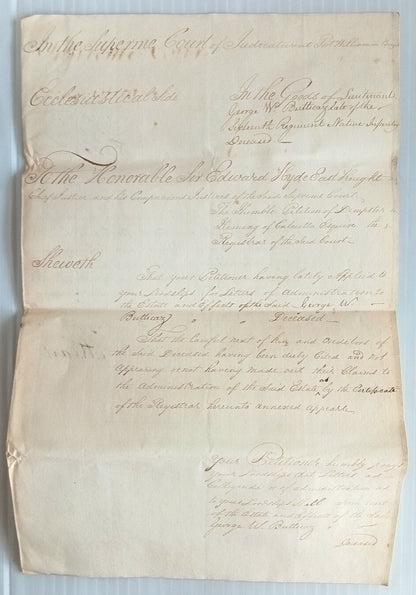 In the Supreme Court of Judicature at Fort William in
Ecclesiastical Side
In the Goods of Lieutenant
George W. Butticaz late of the
Sixteenth Regiment Native Infantry
Deceased
To the Honorable Sir Edward Hyde East Knight
Chief Justice and his Companions Justices of the said Supreme Court
The Humble Petition of Dempster
Heming of Calcutta Esquire the
Registrar of the said Court
Sheweth
That your Petitioner having lately applied to
your Lordships for Letters of Administration to
the Estate and Effects of the said George W.
Butticaz Deceased
That the Careful next of Kin and Creditors of
the said Deceased having been duly Cited and not
Appearing or not having made out their Claims to
the Administration of the said Estate as by the Certificate
of the Registrar hereunto annexed appears
Your Petitioner humbly prays
your Lordships that Letters ad
of administration
to your Lordships
of the Estate and effects of the said
George W. Butticaz
Deceased